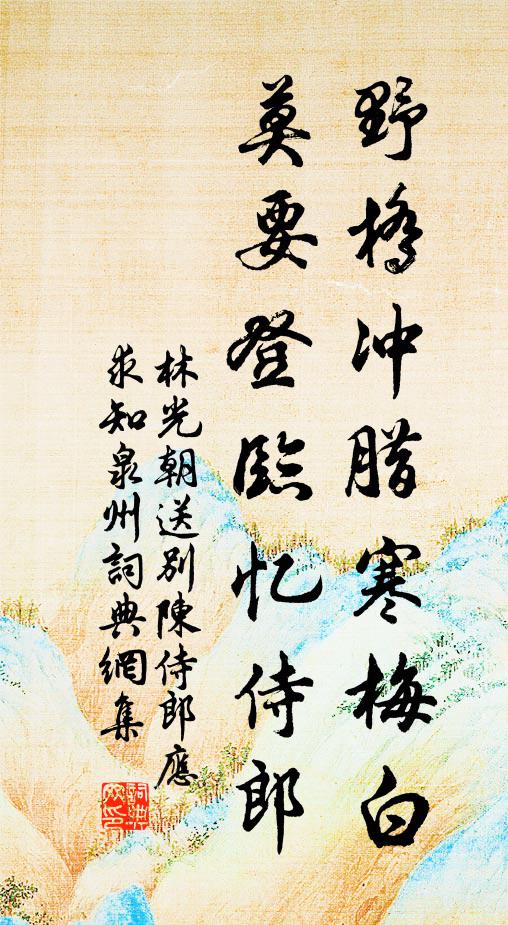 野橋冲腊寒梅白
莫要登臨忆侍郎
林光朝送别陳侍郎應
求知泉州詞典網集